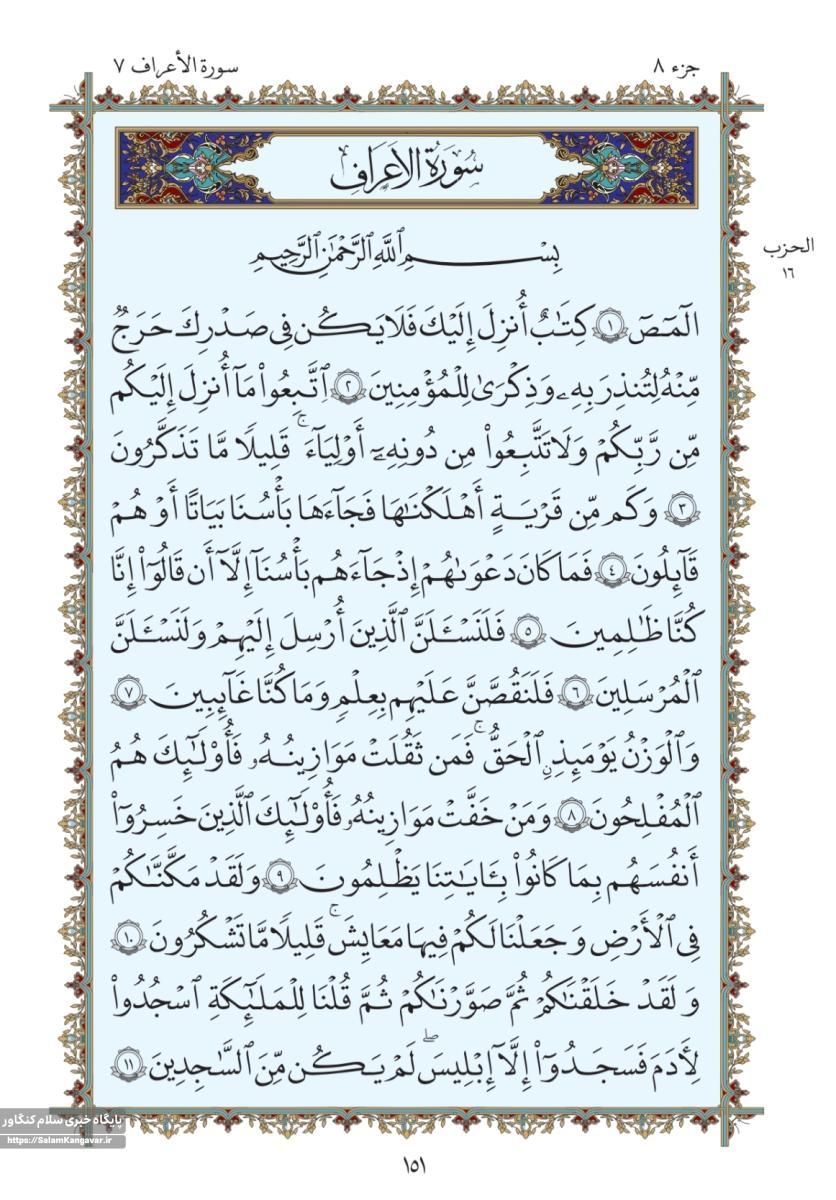 جزء ٨
سورة الأعراف ٧
سُورَةُ الأَعرَافِ
بِسْمِ ٱللَّهِ ٱلرَّحْمَٰنِ ٱلرَّحِيمِ
الحزب
١٦
الٓمٓصٓ ١ كِتَٰبٌ أُنزِلَ إِلَيْكَ فَلَا يَكُن فِى صَدْرِكَ حَرَجٌ
مِّنْهُ لِتُنذِرَ بِهِۦ وَذِكْرَىٰ لِلْمُؤْمِنِينَ ٢ ٱتَّبِعُوا۟ مَآ أُنزِلَ إِلَيْكُم
مِّن رَّبِّكُمْ وَلَا تَتَّبِعُوا۟ مِن دُونِهِۦٓ أَوْلِيَآءَ ۗ قَلِيلًا مَّا تَذَكَّرُونَ
٣ وَكَم مِّن قَرْيَةٍ أَهْلَكْنَٰهَا فَجَآءَهَا بَأْسُنَا بَيَٰتًا أَوْ هُمْ
قَآئِلُونَ ٤ فَمَا كَانَ دَعْوَىٰهُمْ إِذْ جَآءَهُم بَأْسُنَآ إِلَّآ أَن قَالُوٓا۟ إِنَّا
كُنَّا ظَٰلِمِينَ ٥ فَلَنَسْـَٔلَنَّ ٱلَّذِينَ أُرْسِلَ إِلَيْهِمْ وَلَنَسْـَٔلَنَّ
ٱلْمُرْسَلِينَ ٦ فَلَنَقُصَّنَّ عَلَيْهِم بِعِلْمٍ وَمَا كُنَّا غَآئِبِينَ ٧
وَٱلْوَزْنُ يَوْمَئِذٍ ٱلْحَقُّ ۚ فَمَن ثَقُلَتْ مَوَٰزِينُهُۥ فَأُو۟لَٰٓئِكَ هُمُ
ٱلْمُفْلِحُونَ ٨ وَمَنْ خَفَّتْ مَوَٰزِينُهُۥ فَأُو۟لَٰٓئِكَ ٱلَّذِينَ خَسِرُوٓا۟
أَنفُسَهُم بِمَا كَانُوا۟ بِـَٔايَٰتِنَا يَظْلِمُونَ ٩ وَلَقَدْ مَكَّنَّٰكُمْ
فِى ٱلْأَرْضِ وَجَعَلْنَا لَكُمْ فِيهَا مَعَٰيِشَ ۗ قَلِيلًا مَّا تَشْكُرُونَ ١٠
وَلَقَدْ خَلَقْنَٰكُمْ ثُمَّ صَوَّرْنَٰكُمْ ثُمَّ قُلْنَا لِلْمَلَٰٓئِكَةِ ٱسْجُدُوا۟
لِـَٔادَمَ فَسَجَدُوٓا۟ إِلَّآ إِبْلِيسَ لَمْ يَكُن مِّنَ ٱلسَّٰجِدِينَ ١١
پایگاه خبری سلام کنگاور
https://SalamKangavar.ir
١٥١